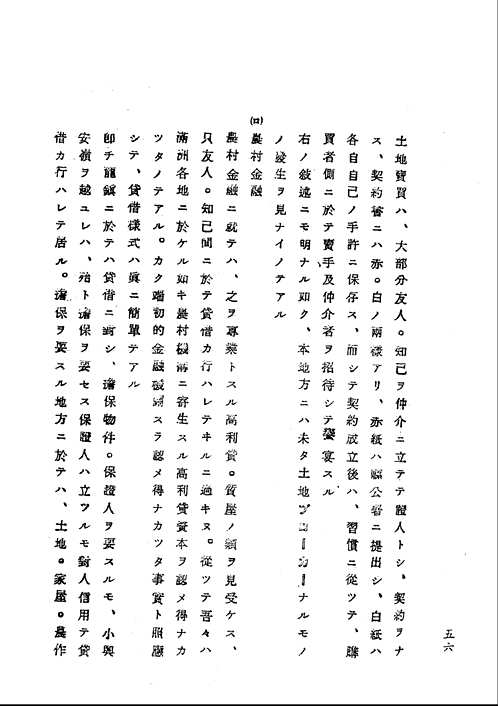 土地賣買ハ、大部分友人。知己ヲ仲介ニ立テテ證人トシ、契約ヲナ
ス、契約書ニハ赤。白ノ兩樣アリ、赤紙ハ縣公署ニ提出シ、白紙ハ
各自自己ノ手許ニ保存ス、而シテ契約成立後ハ、習慣ニ從ツテ、購
買者側ニ於テ賣手及仲介者ヲ招待シテ饗宴スル
右ノ敍述ニモ明ナル如ク、本地方ニハ未タ土地ブローカーナルモノ
ノ發生ヲ見ナイノテアル
(ロ)
農村金融
農村金融ニ就テハ、之ヲ專業トスル高利貸。質屋ノ類ヲ見受ケス、
只友人。知己間ニ於テ貸借カ行ハレテヰルニ過キヌ。從ツテ吾々ハ
滿洲各地ニ於ケル如キ農村機構ニ寄生スル高利貸資本ヲ認メ得ナカ
ツタノテアル。カク端初的金融機關スラ認メ得ナカツタ事實ト照應
シテ、貸借樣式ハ眞ニ簡單テアル
卽チ龍鎭ニ於テハ貸借ニ對シ、擔保物件。保證人ヲ要スルモ、小興
安嶺ヲ越ユレハ、殆ト擔保ヲ要セス保證人ハ立ツルモ對人信用テ貸
借カ行ハレテ居ル。擔保ヲ要スル地方ニ於テハ、土地。家屋。農作
五六